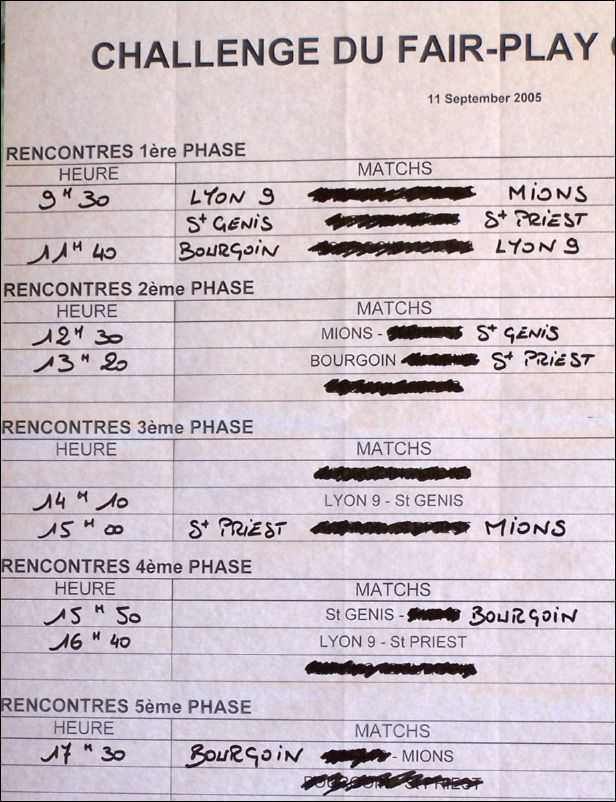 CHALLENGE DU FAIR-PLAY
11 September 2005
RENCONTRES 1ère PHASE
HEURE MATCHS
9 H 30 LYON 9 MIONS
St GENIS St PRIEST
11 H 40 BOURGOIN LYON 9
RENCONTRES 2ème PHASE
HEURE MATCHS
12 H 30 MIONS - St GENIS
13 H 20 BOURGOIN St PRIEST
RENCONTRES 3ème PHASE
HEURE MATCHS
14 H 10 LYON 9 - St GENIS
15 H 00 St PRIEST MIONS
RENCONTRES 4ème PHASE
HEURE MATCHS
15 H 50 St GENIS - BOURGOIN
16 H 40 LYON 9 - St PRIEST
RENCONTRES 5ème PHASE
HEURE MATCHS
17 H 30 BOURGOIN - MIONS